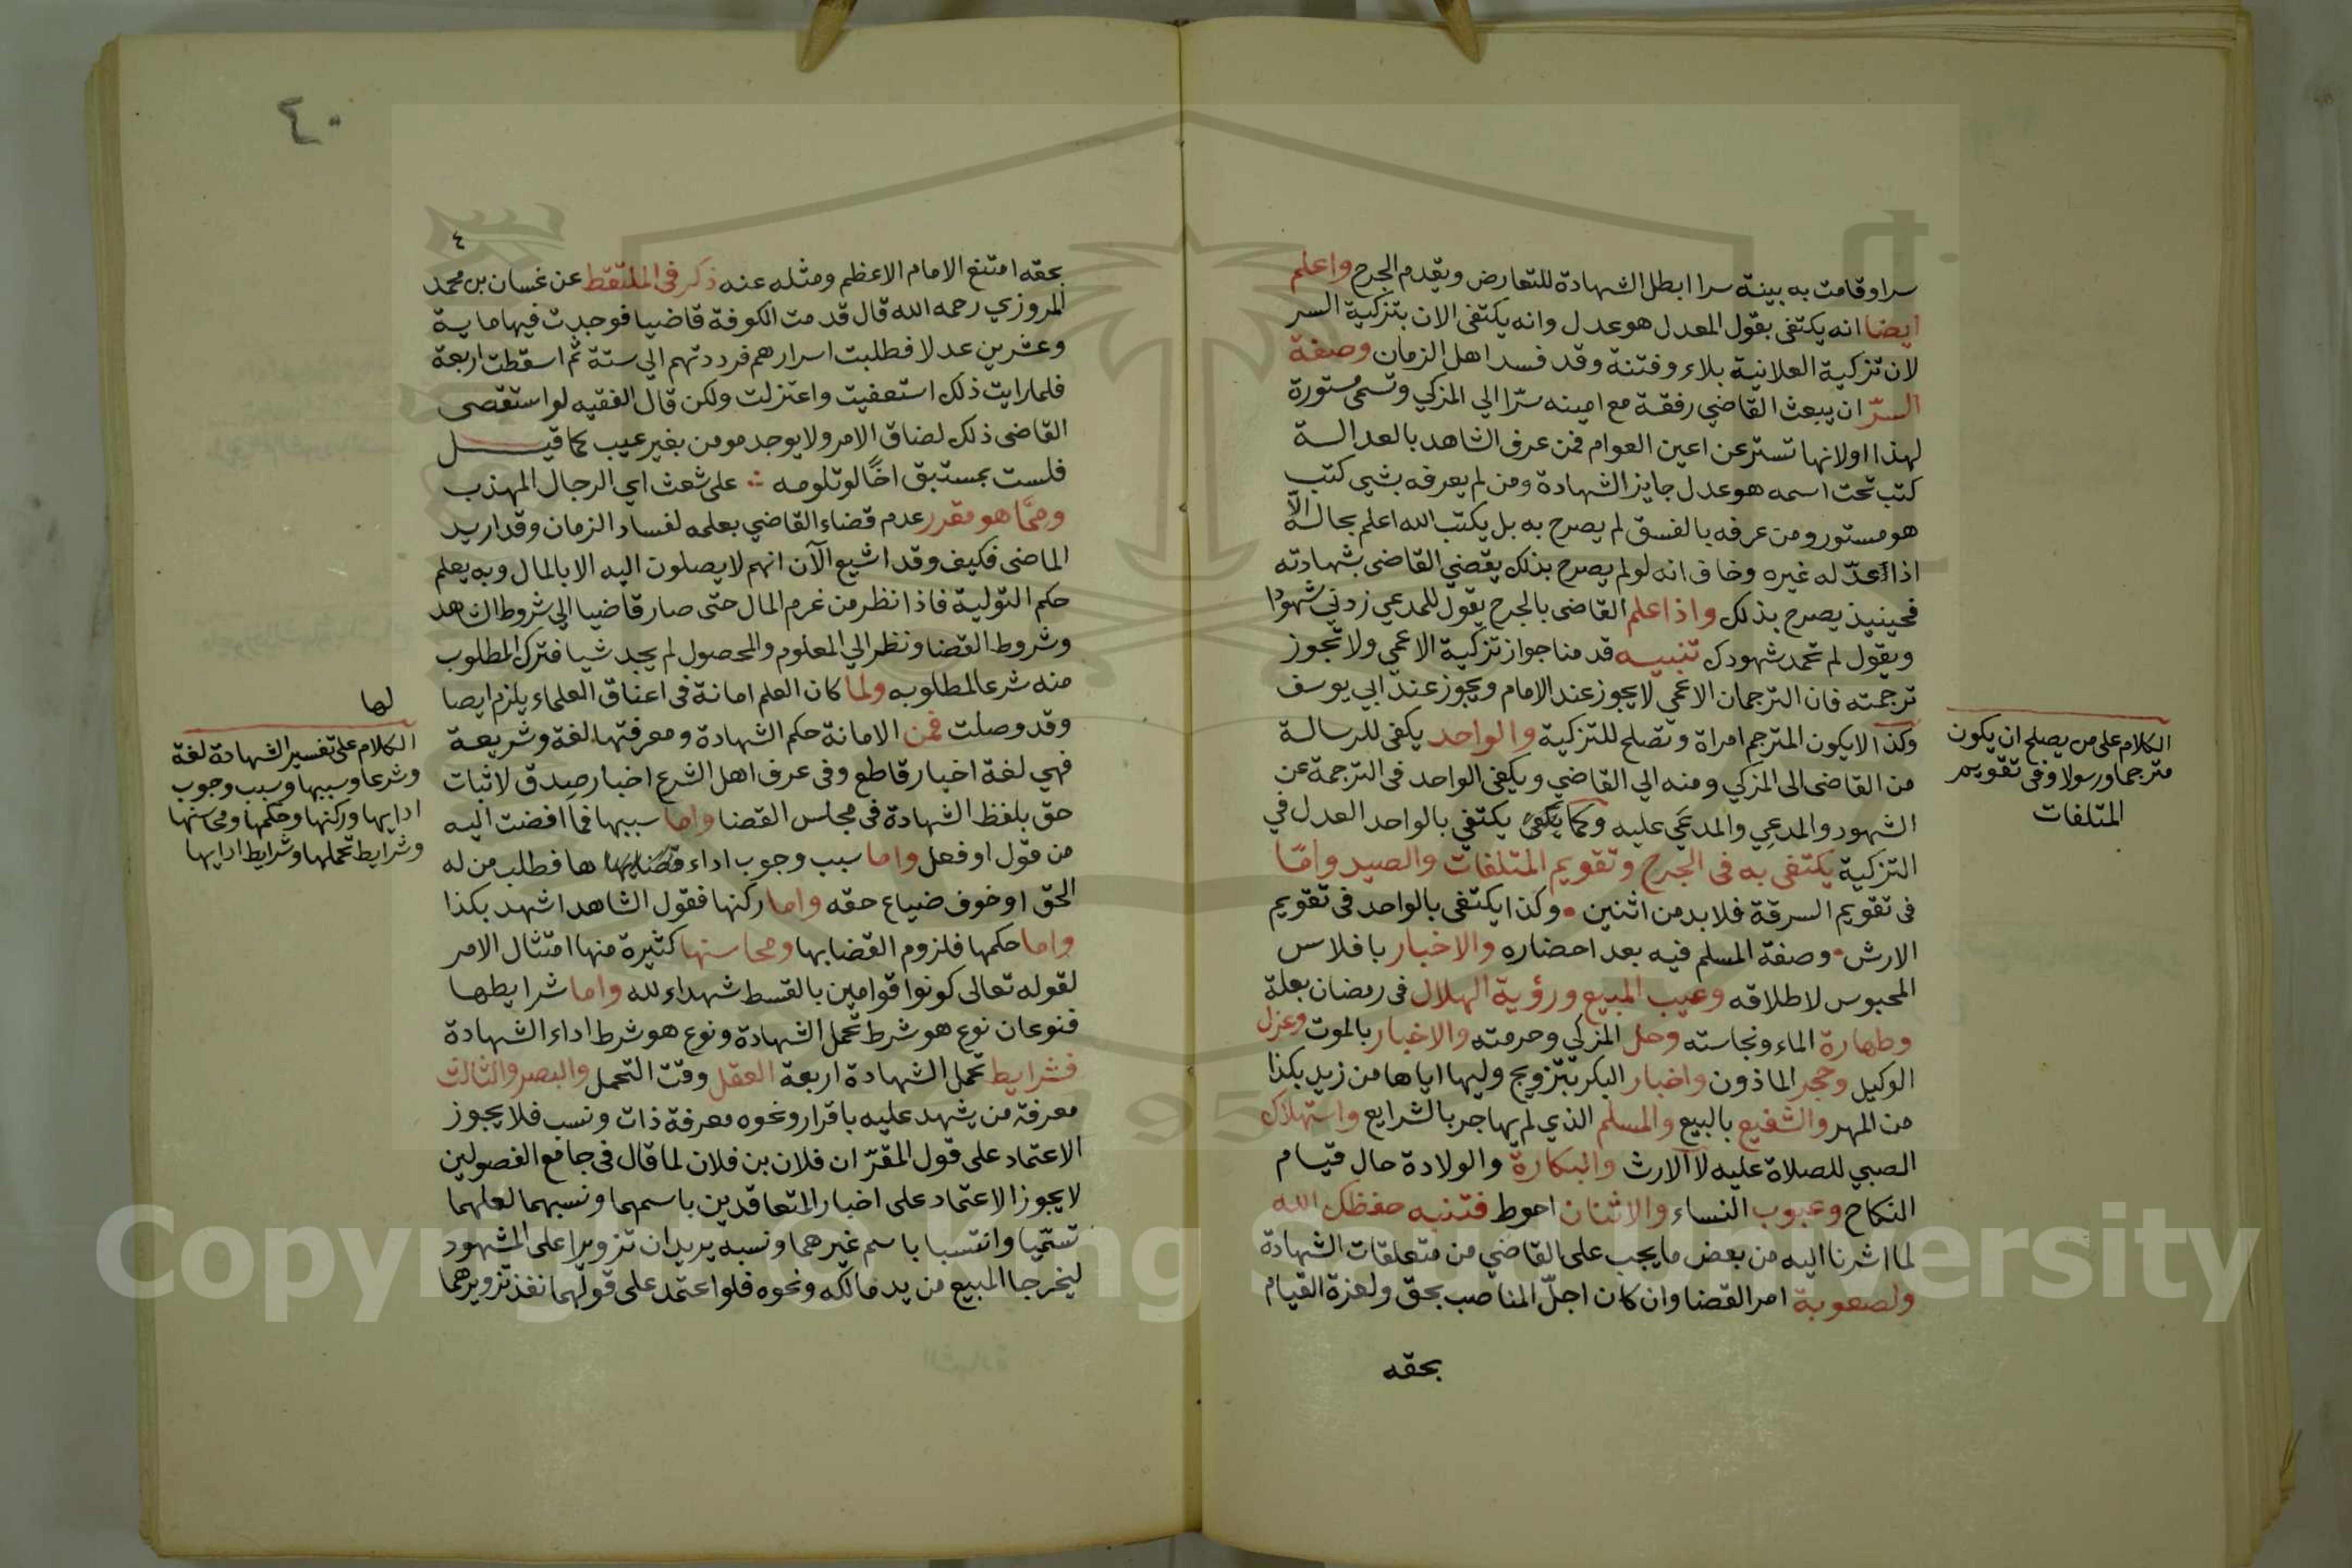 سرا وقامت به بينة سرا ابطل الشهادة للتعارض ويقدم الجرح واعلم
ايضا انه يكتفى بقول المعدل هو عدل وانه يكتفى الان بتزكية السر
لان تزكية العلانية بلاء وفتنة وقد فسد اهل الزمان وصفة
السرّ ان يبعث القاضي رفقة مع امينه سرّا الي المزكي وتسمى مستورة
لهذا او لانها تستر عن اعين العوام فمن عرف الشاهد بالعدالة
كتب تحت اسمه هو عدل جايز الشهادة ومن لم يعرفه بشيء كتب
هو مستور ومن عرفه بالفسق لم يصرح به بل يكتب الله اعلم بحاله الّا
اذا عدّله غيره وخاف انه لو لم يصرح بذلك يقضي القاضي بشهادته
فحينيذ يصرح بذلك واذا علم القاضى بالجرح يقول للمدعي زدني شهودا
ويقول لم تحمد شهودك تنبيه قدمنا جواز تزكية الاعمي ولا تجوز
ترجمته فان الترجمان الاعمي لا يجوز عند الامام ويجوز عند ابي يوسف
وكذا لا يكون المترجم امراة وتصلح للتزكية والواحد يكفي للرسالة
من القاضى الى المزكي ومنه الي القاضي ويكفي الواحد في الترجمة عن
الشهود والمدعي والمدعَي عليه وكما يكتفي بالواحد العدل في
التزكية يكتفى به فى الجرح وتقويم المتلفات والصيد وامّا
فى تقويم السرقة فلا بد من اثنين وكذا يكتفى بالواحد فى تقويم
الارش وصفة المسلم فيه بعد احضاره والاخبار بافلاس
المحبوس لاطلاقه وعيب المبيع ورؤية الهلال فى رمضان بعلة
وطهارة الماء ونجاسته وحل المزكى وحرمته والاخبار بالموت وعزل
الوكيل وحجر الماذون واخبار البكر بتزويج وليها اياها من زيد بكذا
من المهر والشفيع بالبيع والمسلم الذي لم يهاجر بالشرايع واستهلاك
الصبي للصلاة عليه لا الارث والبكارة والولادة حال قيام
النكاح وعيوب النساء والاثنان احوط فتنبه حفظك الله
لما اشرنا اليه من بعض ما يجب على القاضي من متعلقات الشهادة
ولصعوبة امر القضا وان كان اجلّ المناصب بحق ولعزة القيام
بحقه
الكلام على من يصلح ان يكون
مترجما ورسولا وفى تقويم
المتلفات
٤٠
٤
بحقه امتنع الامام الاعظم ومثله عنه ذكر فى الملتقط عن غسان بن محمد
المروزي رحمه الله قال قدمت الكوفة قاضيا فوجدت فيها ماية
وعشرين عدلا فطلبت اسرارهم فرددتهم الي ستة ثم اسقطت اربعة
فلما رايت ذلك استعفيت واعتزلت ولكن قال الفقيه لو استقصى
القاضى ذلك لضاق الامر ولا يوجد مومن بغير عيب كما قيل
فلست بمستبق اخًا لو تلومه على شعث اي الرجال المهذب
وممَّا هو مقرر عدم قضاء القاضي بعلمه لفساد الزمان وقد اريد
الماضى فكيف وقد اشيع الآن انهم لا يصلون اليه الا بالمال وبه يعلم
حكم التولية فاذا نظر من غرم المال حتى صار قاضيا الي شروط الشاهد
وشروط القضا ونظر الي المعلوم والمحصول لم يجد شيا فترك المطلوب
منه شرعا لمطلوبه ولما كان العلم امانة فى اعناق العلماء يلزم ايصا
لها
وقد وصلت فمن الامانة حكم الشهادة ومعرفتها لغة وشريعة
فهي لغة اخبار قاطع وفى عرف اهل الشرع اخبار صدق لاثبات
حق بلفظ الشهادة فى مجلس القضا واما سببها فما افضت اليه
من قول او فعل واما سبب وجوب اداء ها فطلب من له
الحق او خوف ضياع حقه واما ركنها فقول الشاهد اشهد بكذا
واما حكمها فلزوم القضا بها ومحاسنها كثيرة منها امتثال الامر
لقوله تعالى كونوا قوامين بالقسط شهداء لله واما شرايطها
فنوعان نوع هو شرط تحمل الشهادة ونوع هو شرط اداء الشهادة
فشرايط تحمل الشهادة اربعة العقل وقت التحمل والبصر والثالث
معرفة من يشهد عليه باقرار ونحوه معرفة ذات ونسب فلا يجوز
الاعتماد على قول المقرّ ان فلان بن فلان لما قال فى جامع الفصولين
لا يجوز الاعتماد على اخبار المتعاقدين باسمهما ونسبهما لعلهما
تسمّيا وانتسبا باسم غيرهما ونسبه يريدان تزويرا على المشهود
ليخرجا المبيع من يد مالكه ونحوه فلو اعتمد على قولهما نفذ تزويرهما
الكلام على تفسير الشهادة لغة
وشرعا وسببها وسبب وجوب
ادايها وركنها وحكمها ومحاسنها
وشرايط تحملها وشرايط ادايها
Copyright © King Saud University